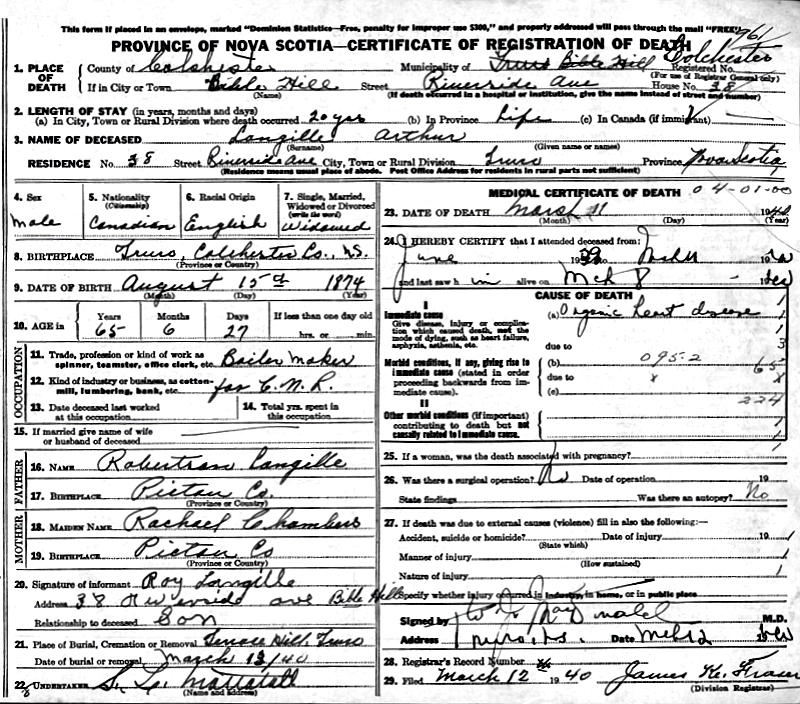 This form if placed in an envelope, marked "Dominion Statistics—Free, penalty for improper use $300," and properly addressed will pass through the mail "FREE"
961
PROVINCE OF NOVA SCOTIA—CERTIFICATE OF REGISTRATION OF DEATH
1. PLACE OF DEATH
County of Colchester Municipality of Truro Bible Hill Colchester Registered No.
(For use of Registrar General only)
If in City or Town Bible Hill Street Riverside Ave House No. 38
(Name) (If death occurred in a hospital or institution, give the name instead of street and number)
2. LENGTH OF STAY (in years, months and days)
(a) In City, Town or Rural Division where death occurred 20 yrs (b) In Province Life (c) In Canada (if immigrant)
3. NAME OF DECEASED Langille Arthur
(Surname) (Given name or names)
RESIDENCE No. 38 Street Riverside Ave City, Town or Rural Division Truro Province Nova Scotia
(Residence means usual place of abode. Post Office Address for residents in rural parts not sufficient)
4. Sex Male
5. Nationality (Citizenship) Canadian
6. Racial Origin English
7. Single, Married, Widowed or Divorced (write the word) Widowed
8. BIRTHPLACE Truro, Colchester Co., N.S.
(Province or Country)
9. DATE OF BIRTH August 15th 1874
(Month) (Day) (Year)
10. AGE in Years Months Days If less than one day old
65 6 27 hrs. or min.
OCCUPATION
11. Trade, profession or kind of work as spinner, teamster, office clerk, etc. Boiler Maker
12. Kind of industry or business, as cotton-mill, lumbering, bank, etc. for C.N.R.
13. Date deceased last worked at this occupation
14. Total yrs. spent in this occupation
15. If married give name of wife or husband of deceased
FATHER
16. NAME Robertson Langille
17. BIRTHPLACE Pictou Co.
(Province or Country)
MOTHER
18. MAIDEN NAME Rachael Chambers
19. BIRTHPLACE Pictou Co
(Province or Country)
20. Signature of informant Roy Langille
Address 38 Riverside ave Bible Hill
Relationship to deceased Son
21. Place of Burial, Cremation or Removal Terrace Hill, Truro
Date of burial or removal March 13/40
22. UNDERTAKER S. L. Mattatall
(Name and address)
MEDICAL CERTIFICATE OF DEATH 04-01-00
23. DATE OF DEATH March 11 1940
(Month) (Day) (Year)
24. I HEREBY CERTIFY that I attended deceased from:
June 1939 to Mch 11
and last saw him alive on Mch 8
CAUSE OF DEATH
I
Immediate cause
Give disease, injury or complication which caused death, not the mode of dying, such as heart failure, asphyxia, asthenia, etc.
(a) Organic heart disease
due to
3
Morbid conditions, if any, giving rise to immediate cause (stated in order proceeding backwards from immediate cause)
(b) 095-2
65
due to x x
(c) 224
II
Other morbid conditions (if important) contributing to death but not causally related to immediate cause.
25. If a woman, was the death associated with pregnancy?
26. Was there a surgical operation? No Date of operation 19
State findings Was there an autopsy? No
27. If death was due to external causes (violence) fill in also the following:—
Accident, suicide or homicide? Date of injury 19
(State which)
Manner of injury
(How sustained)
Nature of injury
Specify whether injury occurred in industry, in home, or in public place
Signed by M.D.
Address Truro, N.S. Date
28. Registrar's Record Number
29. Filed March 12 1940 James K. Fraser
(Division Registrar)